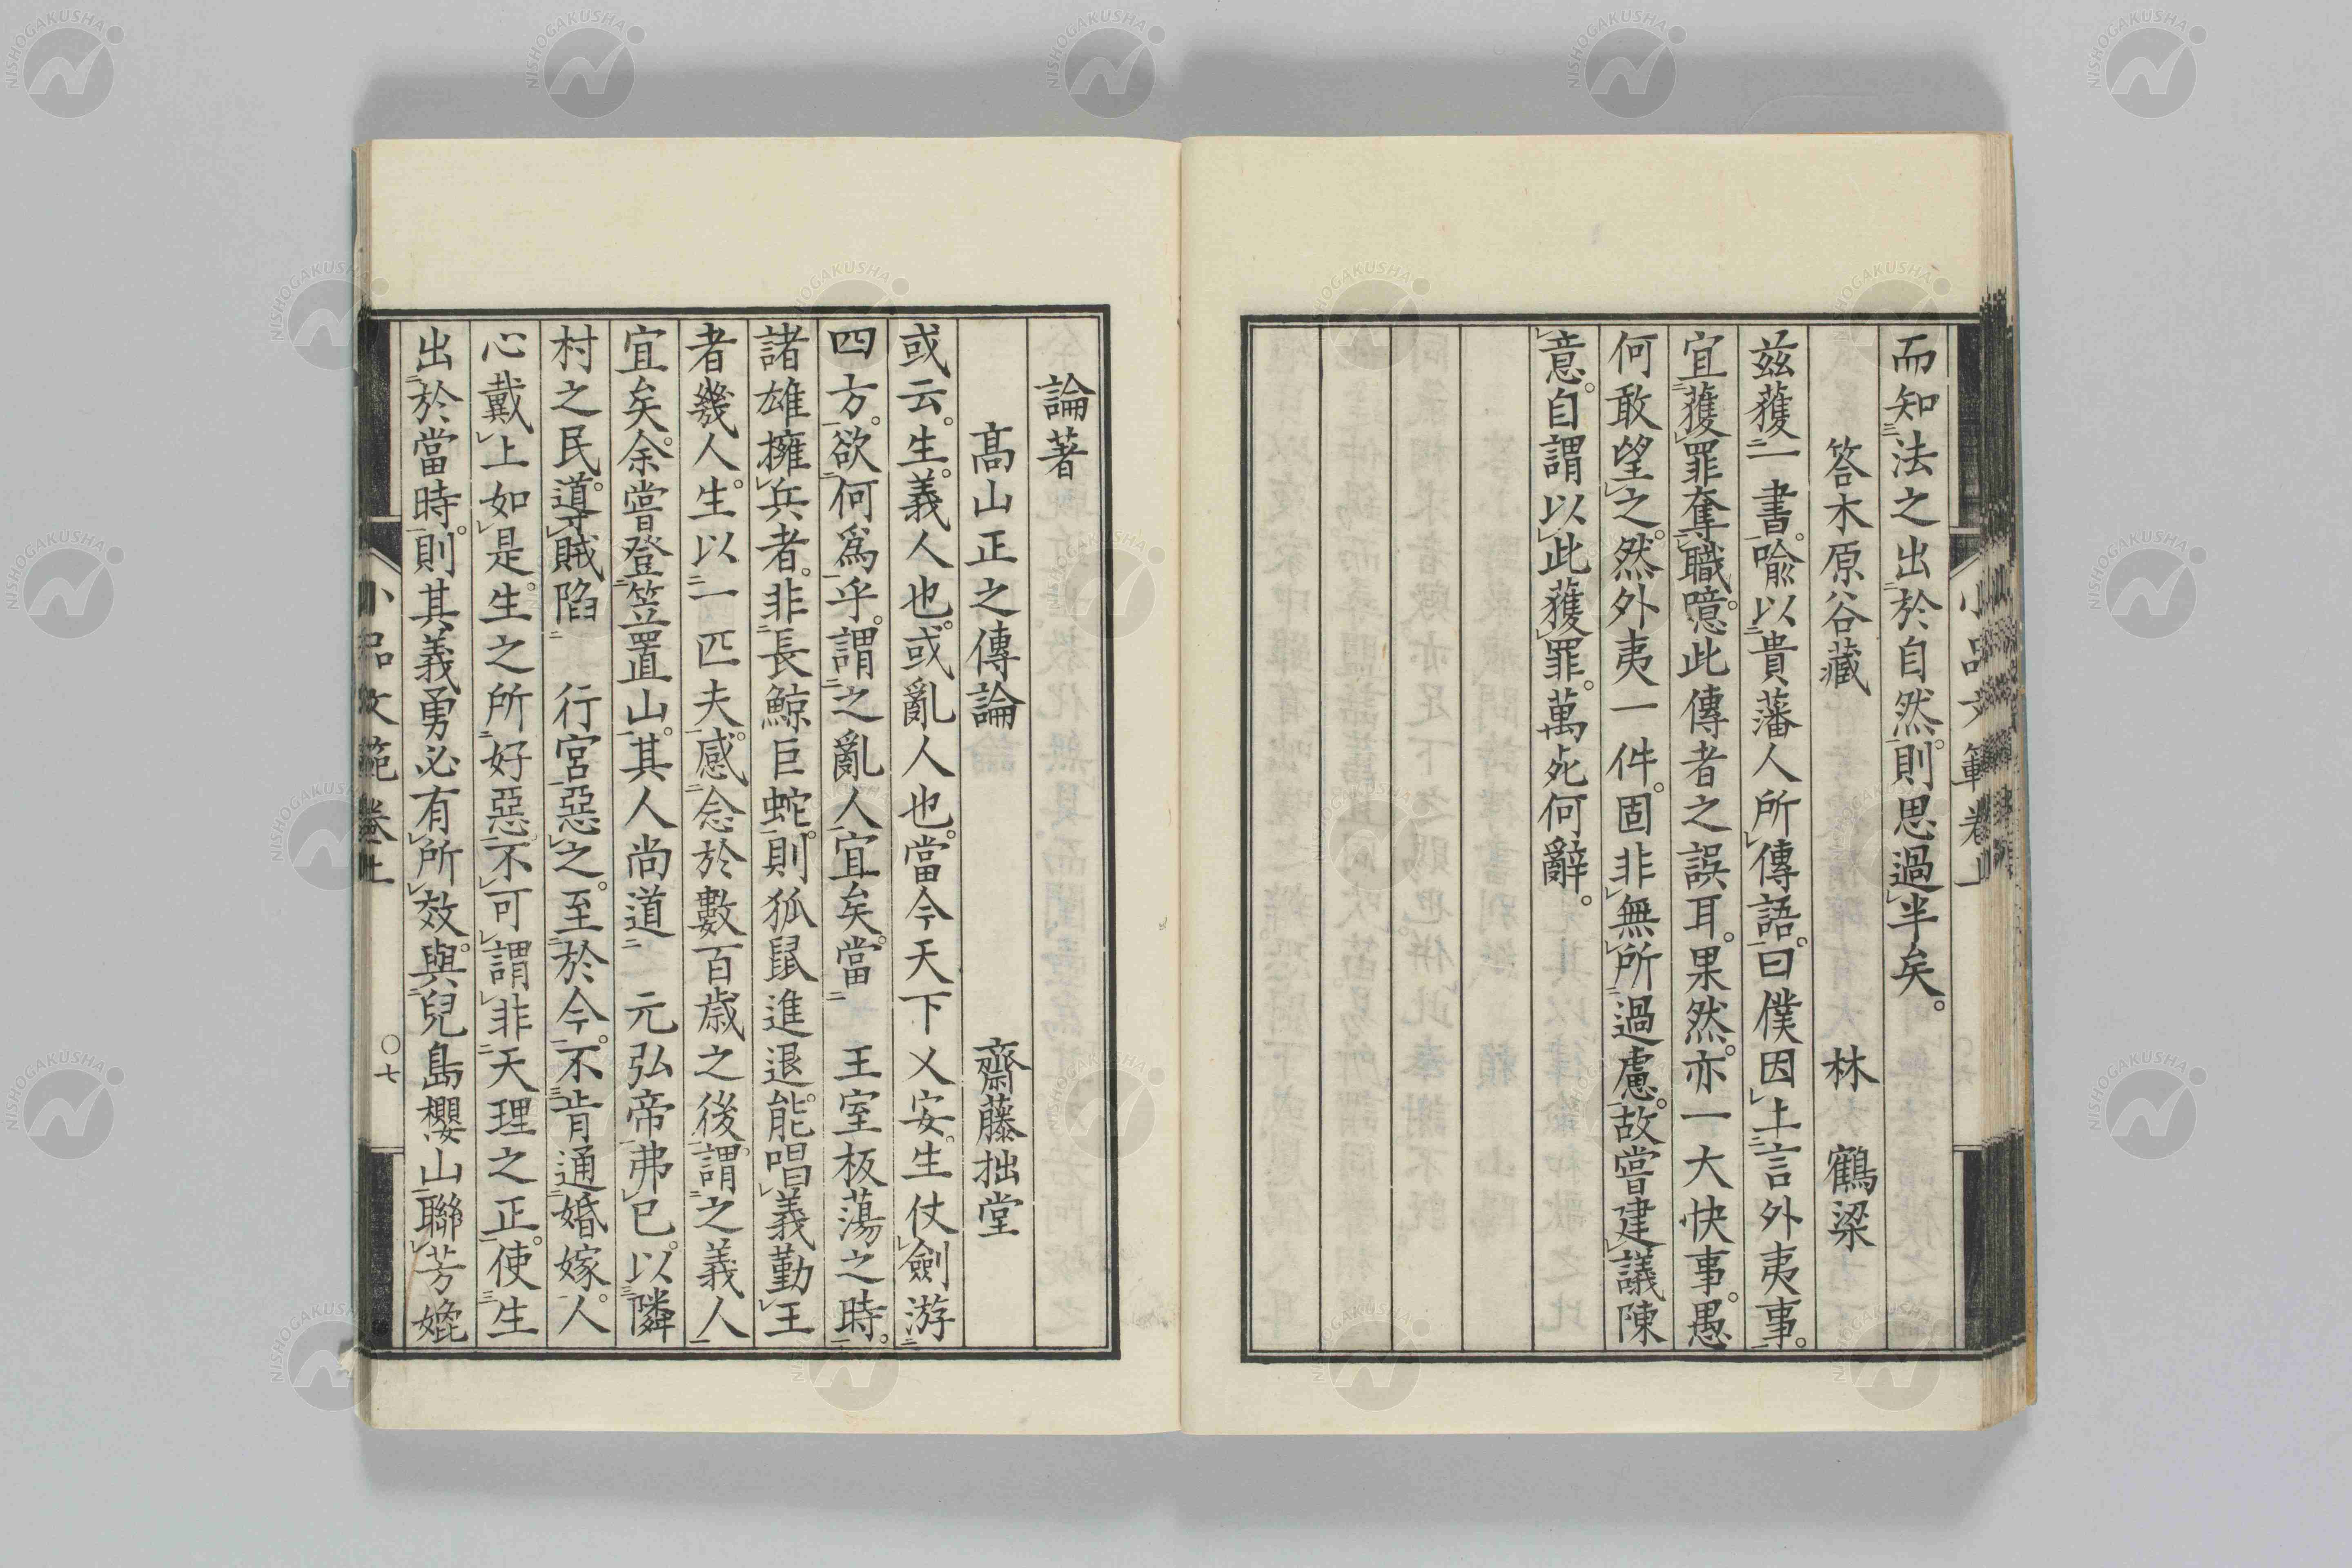 而知法之出於自然。則思過半矣。
答木原谷藏　林　鶴梁
茲獲一書。喩以貴藩人所傳語。曰僕因上言外夷事。
宜獲罪奪職。噫。此傳者之誤耳。果然。亦一大快事。愚
何敢望之。然外夷一件。固非無所過慮。故嘗建議陳
意。自謂以此獲罪。萬死何辭。
論著
高山正之傳論　齋藤拙堂
或云。生。義人也。或亂人也。當今天下乂安。生仗劍游
四方。欲何爲乎。謂之亂人宜矣。當　王室板蕩之時。
諸雄擁兵者。非長鯨巨蛇。則狐鼠進退。能唱義勤王
者幾人。生以一匹夫。感念於數百歲之後。謂之義人
宜矣。余嘗登笠置山。其人尚道　元弘帝弗已。以隣
村之民。導賊陷　行宮惡之。至於今。不肯通婚嫁。人
心戴上如是。生之所好惡。不可謂非天理之正。使生
出於當時。則其義勇必有所效。與兒島櫻山聯芳嬎
小品文範卷上
〇七
NISHOGAKUSHA